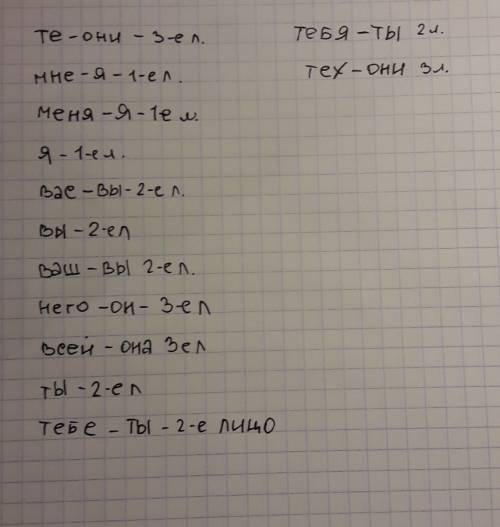 те - они - 3-е л.
мне - я - 1-е л.
меня - я - 1 е л.
я - 1-е л.
вае - вы - 2-е л.
вы - 2-е л
ваш - вы 2-е л.
него - он - 3-е л
всей - она 3 е л
ты - 2-е л
тебе - ты - 2-е лицо
тебя - ты 2 л.
тех - они 3 л.